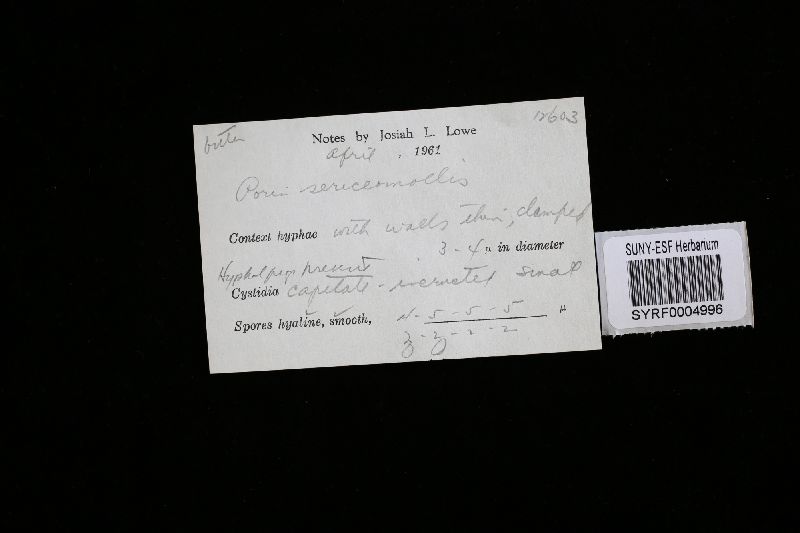 bitter
12603
Notes by Josiah L. Lowe
April , 1961
Poria sericeomollis
Context hyphae with walls thin, clamped
3 - 4 µ in diameter
Hyphal pegs present
Cystidia capitate - incrusted small
Spores hyaline, smooth, - 5 - 5 - 5 µ
2 - 2 - 2 - 2
SUNY-ESF Herbarium
SYRF0004996